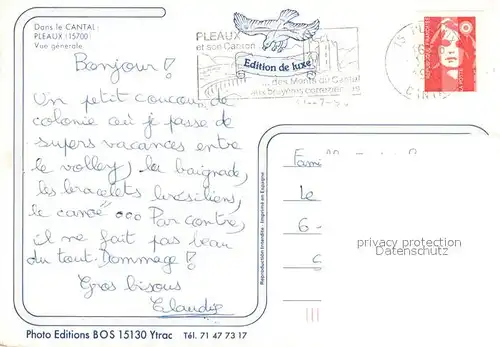 Dans le CANTAL:
PLEAUX (15700)
Vue générale
PLEAUX
et son Canton
Edition de luxe
... des Monts du Cantal
aux bruyères corréziennes
15 PL
Bonjour!
Un petit coucou de
colonie où je passe de
supers vacances entre
le volley, la baignade,
les bracelets brésiliens,
le canoë ooo Par contre,
il ne fait pas beau
du tout. Dommage!
Gros bisous
Claudie
Reproduction Interdite - Imprimé en Espagne
Fami
Le
6 -
privacy protection
Datenschutz
Photo Editions BOS 15130 Ytrac Tél. 71 47 73 17